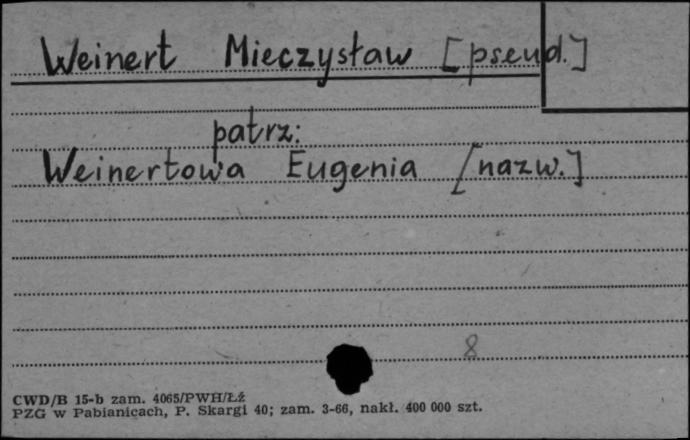 Weinert Mieczysław [pseud.]
patrz:
Weinertowa Eugenia [nazw.]
8
CWD/B 15-b zam. 4065/PWH/Łź
PZG w Pabianicach, P. Skargi 40; zam. 3-66, nakł. 400 000 szt.